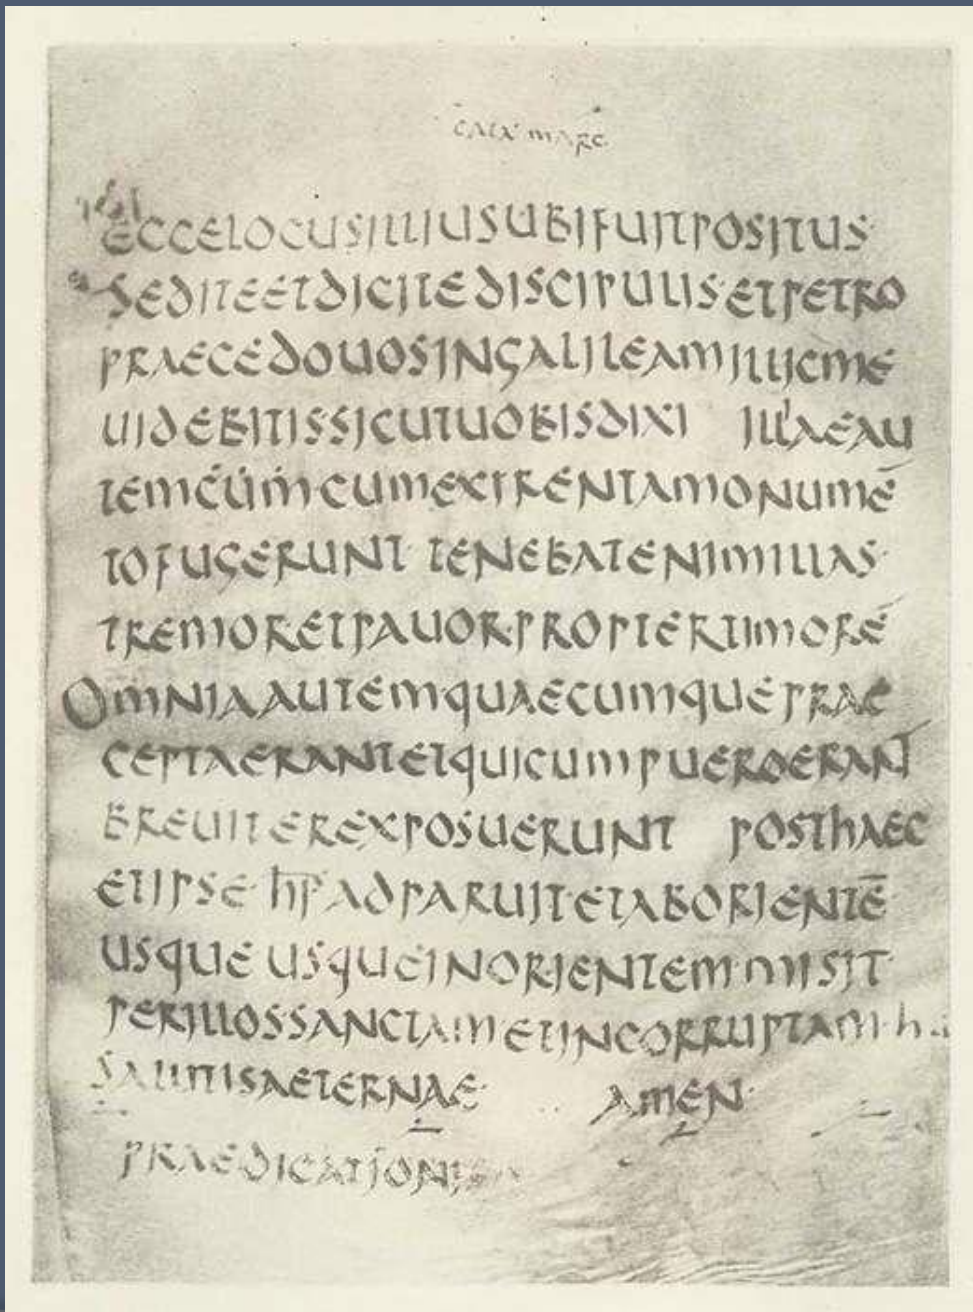 CATA MARC
ECCELOCUSILLIUSUBIFUITPOSITUS
SEDITEETDICITEDISCIPULISETPETRO
PRAECEDOUOSINGALILEAMILLICME
UIDEBITISSICUTUOBISDIXI ILLAEAU
TEMCUMCUMEXIRENTAMONUMĒ
TOFUGERUNT TENEBATENIMILLAS
TREMORETPAUORPROPTERTIMORĒ
OMNIAAUTEMQUAECUMQUEPRAE
CEPTAERANTETQUICUMPUEROERANT
BREUITEREXPOSUERUNT POSTHAEC
ETIPSE HIS ADPARUITETABORIENTĒ
USQUE USQUEINORIENTEM MISIT
PERILLOSSANCTAMETINCORRUPTAM
SALUTISAETERNAE AMEN
PRAEDICATIONIS